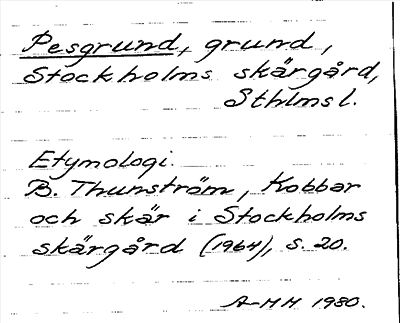 Pesgrund, grund,
Stockholms skärgård,
Sthlms l.
Etymologi.
B. Thunström, Kobbar
och skär i Stockholms
skärgård (1964), s. 20.
A-MH 1980.